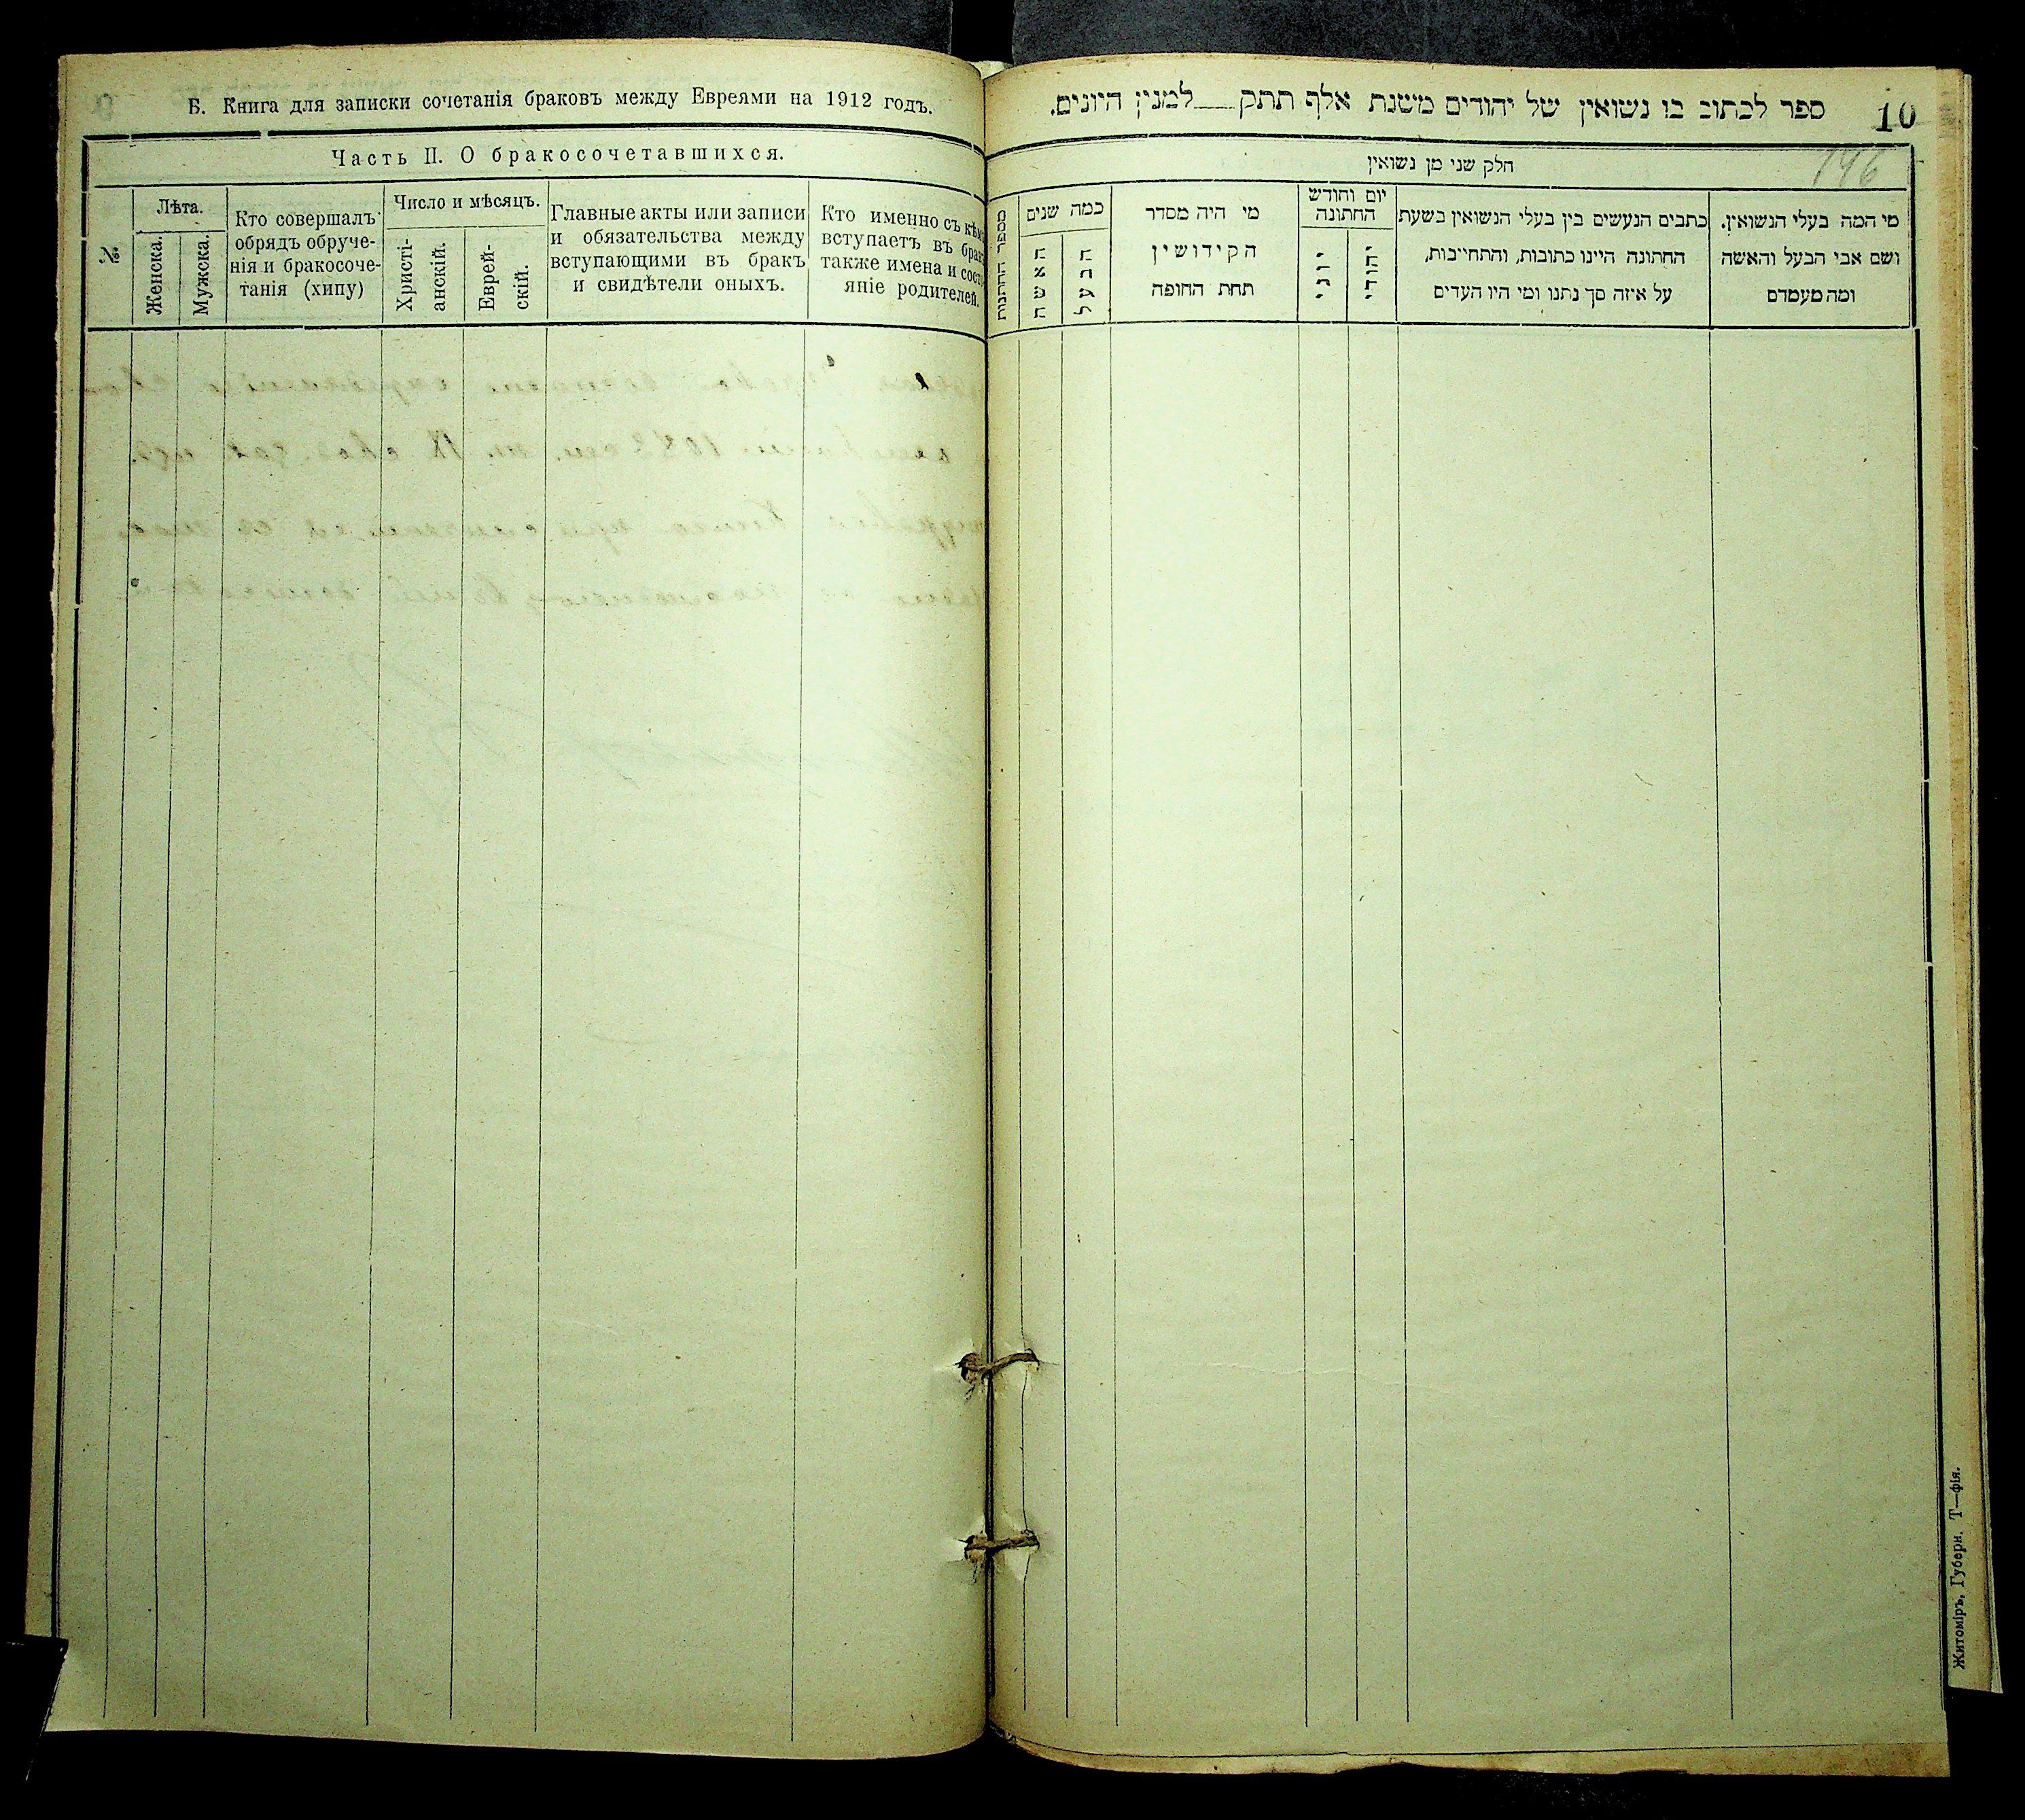 Б. Книга для записки сочетанія браковъ между Евреями на 1912 годъ.
Часть II. О бракосочетавшихся.
№
Лѣта.
Женска.
Мужска.
Кто совершалъ
обрядъ обруче-
нія и бракосоче-
танія (хипу)
Число и мѣсяцъ.
Христі-
анскій.
Еврей-
скій.
Главные акты или записи
и обязательства между
вступающими въ бракъ
и свидѣтели оныхъ.
Кто именно съ кѣмъ
вступаетъ въ бракъ
также имена и состо
яніе родителей.
ספר לכתוב בו נשואין של יהודים משנת אלף תתק — למנין היונים.
10
146
חלק שני מן נשואין
מי המה בעלי הנשואין.
ושם אבי הבעל והאשה
ומה מעמדם
כתבים הנעשים בין בעלי הנשואין בשעת
החתונה היינו כתובות, והתחייבות,
על איזה סך נתנו ומי היו העדים
יום וחודש
החתונה
יהודי
יוני
מי היה מסדר
הקידושין
תחת החופה
כמה שנים
הבעל
האשה
מספר החתנות
Житоміръ, Губерн. Т—фія.